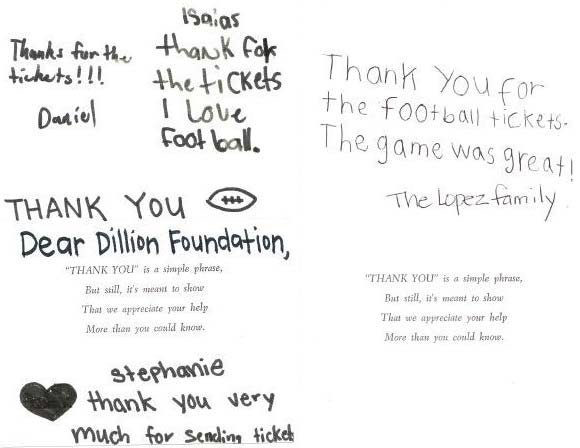 Isaias
Thanks for the
tickets!!!
Daniel
thank for
the tickets
I love
Football.
THANK YOU
Dear Dillion Foundation,
"THANK YOU" is a simple phrase,
But still, it's meant to show
That we appreciate your help
More than you could know.
stephanie
thank you very
much for sending ticket
Thank You for
the football tickets.
The game was great!
The Lopez family
"THANK YOU" is a simple phrase,
But still, it's meant to show
That we appreciate your help
More than you could know.